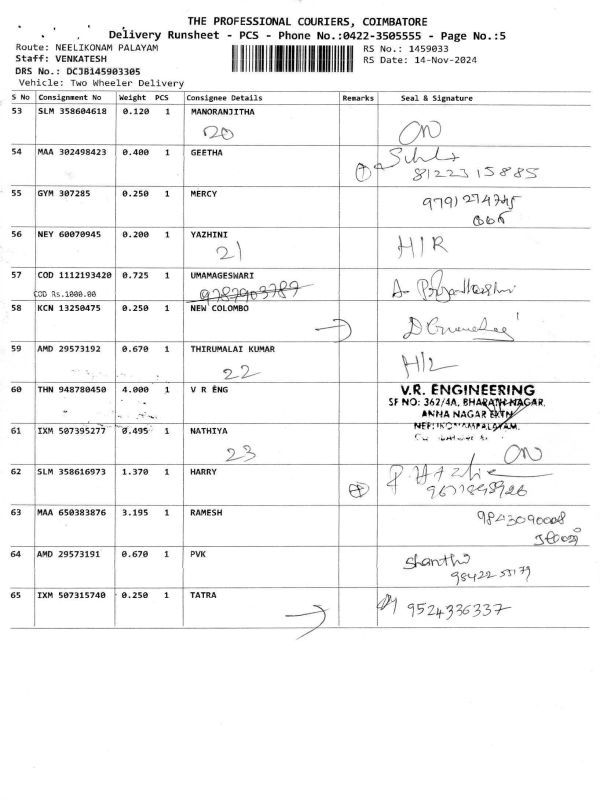 THE PROFESSIONAL COURIERS, COIMBATORE
Delivery Runsheet - PCS - Phone No.:0422-3505555 - Page No.:5
Route: NEELIKONAM PALAYAM
RS No.: 1459033
Staff: VENKATESH
RS Date: 14-Nov-2024
DRS No.: DCJB145903305
Vehicle: Two Wheeler Delivery
S No Consignment No Weight PCS Consignee Details Remarks Seal & Signature
53 SLM 358604618 0.120 1 MANORANJITHA
20 ON
54 MAA 302498423 0.400 1 GEETHA
8122315885
55 GYM 307285 0.250 1 MERCY
9791274745
56 NEY 60070945 0.200 1 YAZHINI
21 H/R
57 COD 1112193420 0.725 1 UMAMAGESWARI
COD Rs.1000.00 9787903787
58 KCN 13250475 0.250 1 NEW COLOMBO
59 AMD 29573192 0.670 1 THIRUMALAI KUMAR
22
60 THN 948780450 4.000 1 V R ENG
V.R. ENGINEERING
SF NO: 362/4A, BHARATH NAGAR,
ANNA NAGAR EXTN
61 IXM 507395277 0.495 1 NATHIYA
23 ON
62 SLM 358616973 1.370 1 HARRY
63 MAA 650383876 3.195 1 RAMESH
9843090008
64 AMD 29573191 0.670 1 PVK
Shanthi
98422 55179
65 IXM 507315740 0.250 1 TATRA
9524336337